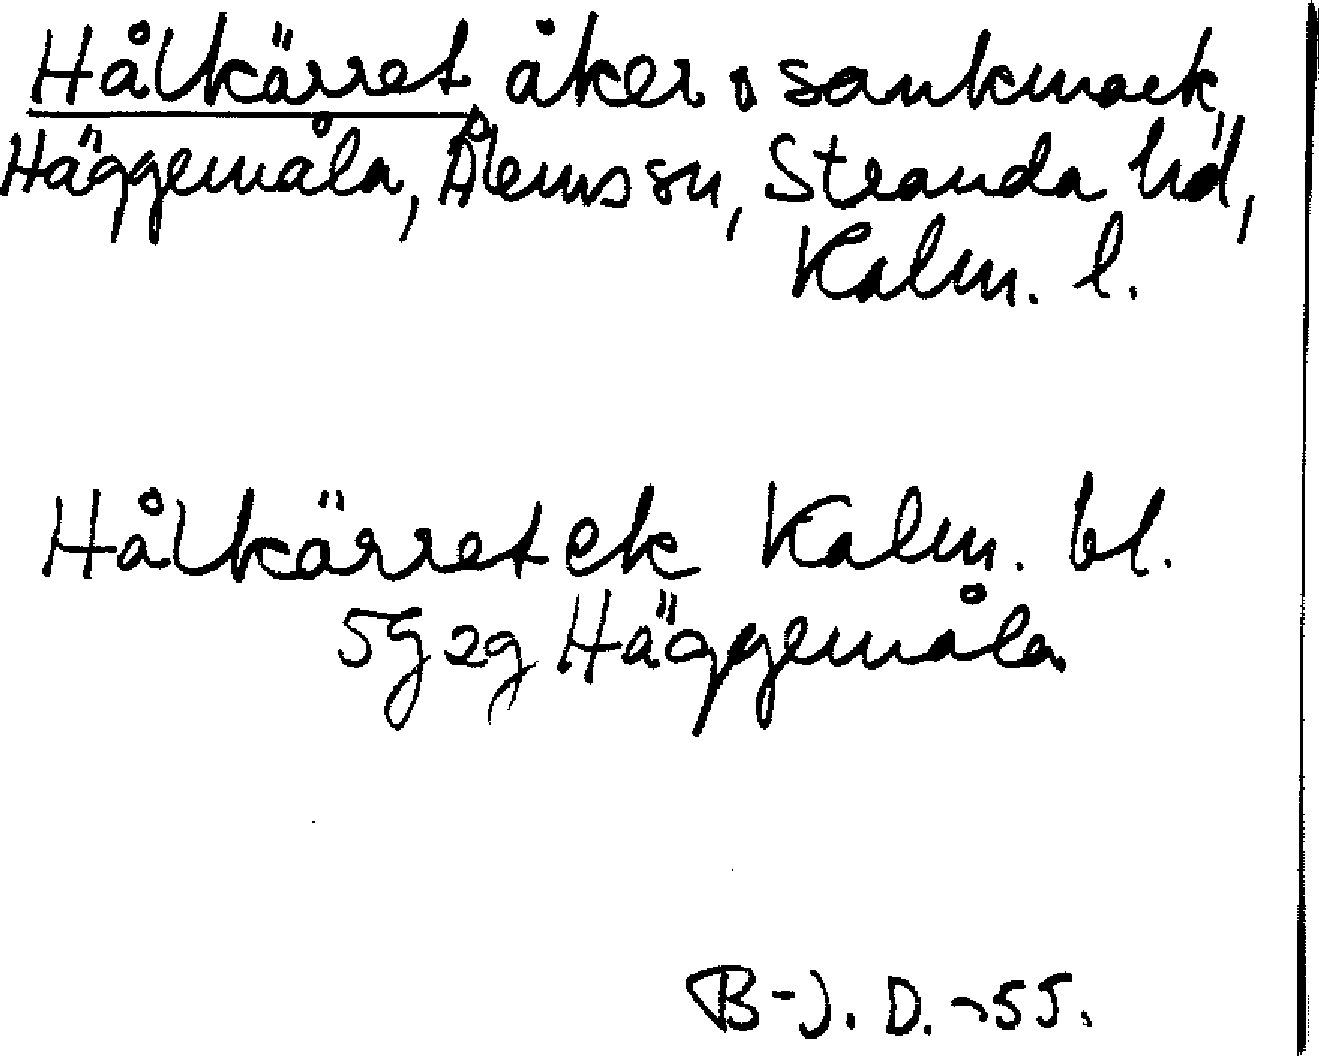 Hålkärret åker o sankmark
Häggemåla, Ålems sn, Stranda hd,
Kalm. l.
Hålkärret ek Kalm. bl.
5g2g Häggemåla
B-J. D. -55.